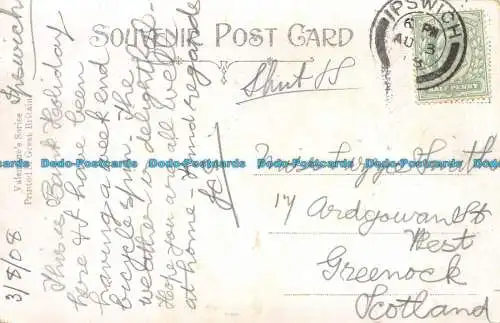 SOUVENIR POST CARD
IPSWICH
6 PM
AU 3
HALFPENNY
Valentine's Series
Printed in Great Britain
3/8/08 Ipswich
This is Bank Holiday
here & I have been
having a week end
bicycle spin - The
weather is delightful -
Hope you are all well
at home - Kind regards
Miss Lizzie Smith
17 Ardgowan St
West
Greenock
Scotland
Dodo-Postcards Dodo-Postcards Dodo-Postcards Dodo-Postcards